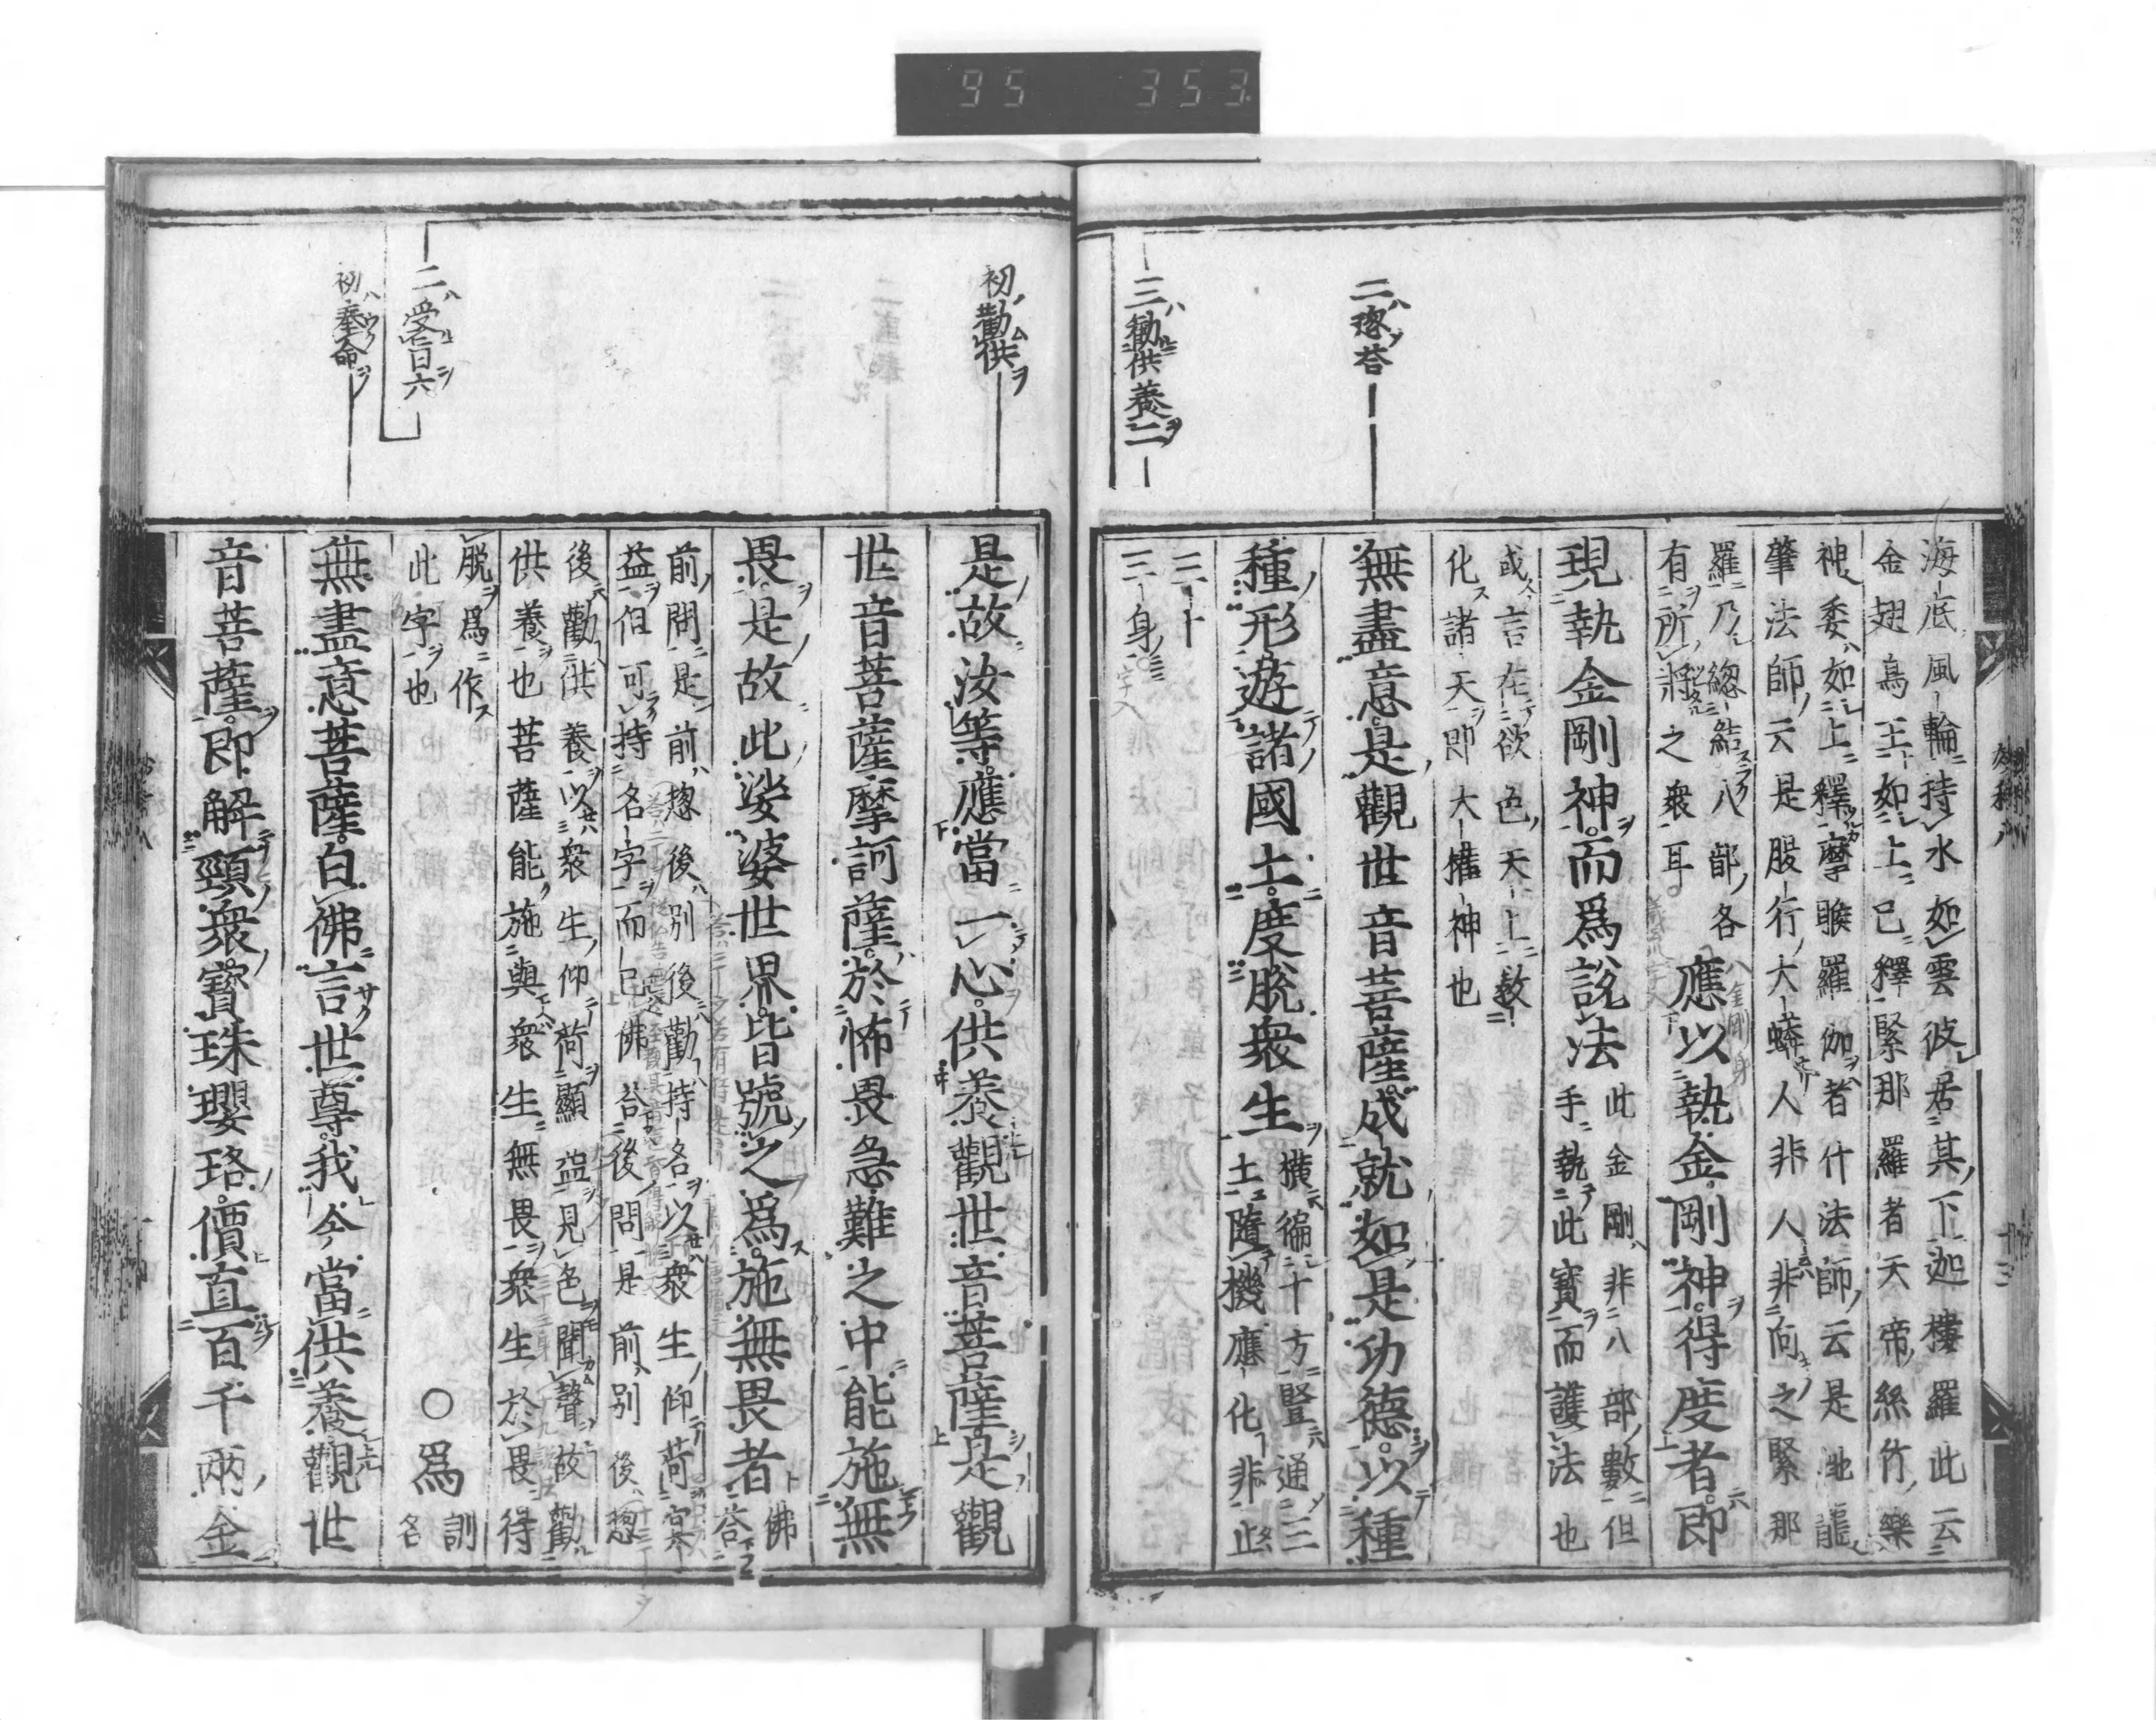 95 353
二總荅
三勸供養二
海底風輪持水如雲彼居其下迦樓羅此云
金翅鳥王如上已釋緊那羅者天帝絲竹樂
神委如上釋摩睺羅伽者什法師云是地龍
肇法師云是股行大蟒人非人非人非向之緊那
羅乃總結八部各
有所將之衆耳
應以執金剛神得度者即
現執金剛神而爲說法
此金剛非八部數但
手執此寶而護法也
或言在欲色天上教
化諸天即大權神也
無盡意是觀世音菩薩成就如是功德以種
種形遊諸國土度脫衆生
橫徧十方豎通三
土隨機應化非止
三十
三身
初勸供
二受旨六
初奉命
是故汝等應當一心供養觀世音菩薩是觀
世音菩薩摩訶薩於怖畏急難之中能施無
畏是故此娑婆世界皆號之爲施無畏者
佛
荅
前問是前總後別後勸持名以衆生仰荷宗
益但可持名字而已佛荅後問是前別後總
後勸供養以衆生仰荷顯益見色聞聲故勸
供養也菩薩能施與衆生無畏衆生於畏得
脫爲作
此字也
○爲
訓
名
無盡意菩薩白佛言世尊我今當供養觀世
音菩薩即解頸衆寶珠瓔珞價直百千兩金